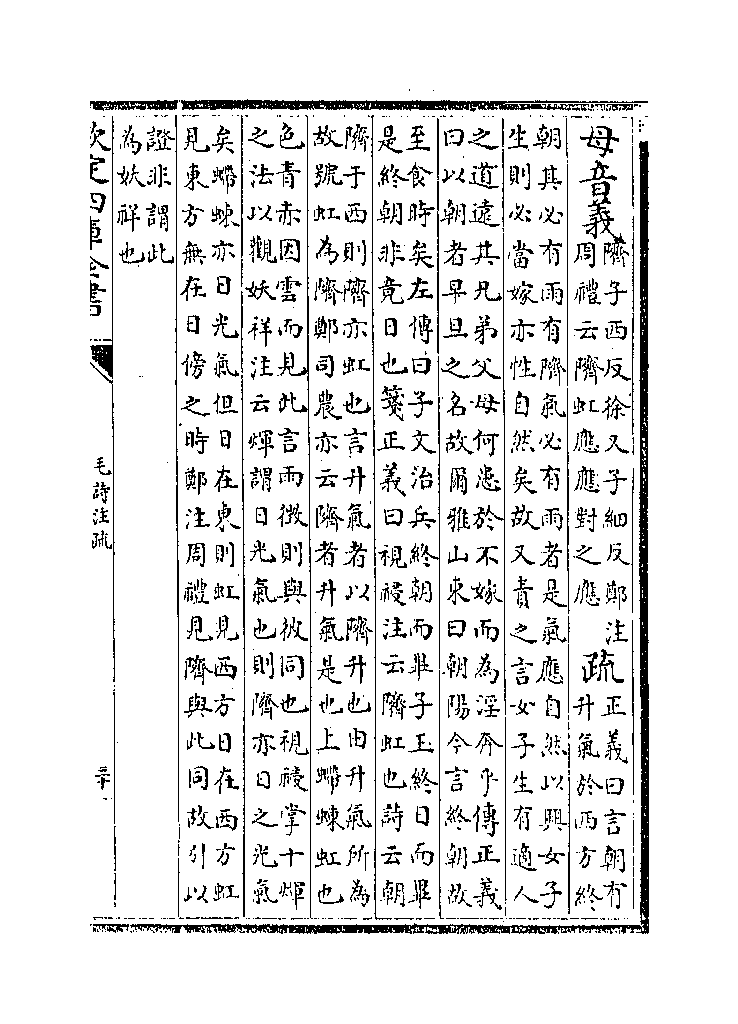 母音義
隮子西反徐又子細反鄭注
周禮云隮虹應應對之應
疏
正義曰言朝有
升氣於西方終
朝其必有雨有隮氣必有雨者是氣應自然以興女子
生則必當嫁亦性自然矣故又責之言女子生有適人
之道遠其兄弟父母何患於不嫁而為淫奔乎傳正義
曰以朝者早旦之名故爾雅山東曰朝陽今言終朝故
至食時矣左傳曰子文治兵終朝而畢子玉終日而畢
是終朝非竟日也箋正義曰視祲注云隮虹也詩云朝
隮于西則隮亦虹也言升氣者以隮升也由升氣所為
故號虹為隮鄭司農亦云隮者升氣是也上蝃蝀虹也
色青赤因雲而見此言雨徵則與彼同也視祲掌十煇
之法以觀妖祥注云煇謂日光氣也則隮亦日之光氣
矣蝃蝀亦日光氣但日在東則虹見西方日在西方虹
見東方無在日傍之時鄭注周禮見隮與此同故引以
證非謂此
為妖祥也
欽定四庫全書
毛詩注疏